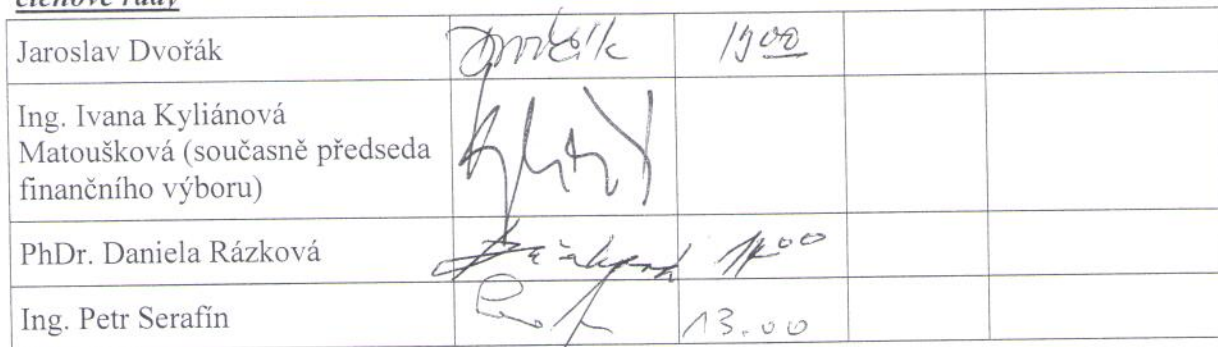 členové rady
Jaroslav Dvořák
Ing. Ivana Kyliánová
Matoušková (současně předseda
finančního výboru)
PhDr. Daniela Rázková
Ing. Petr Serafín 13.00